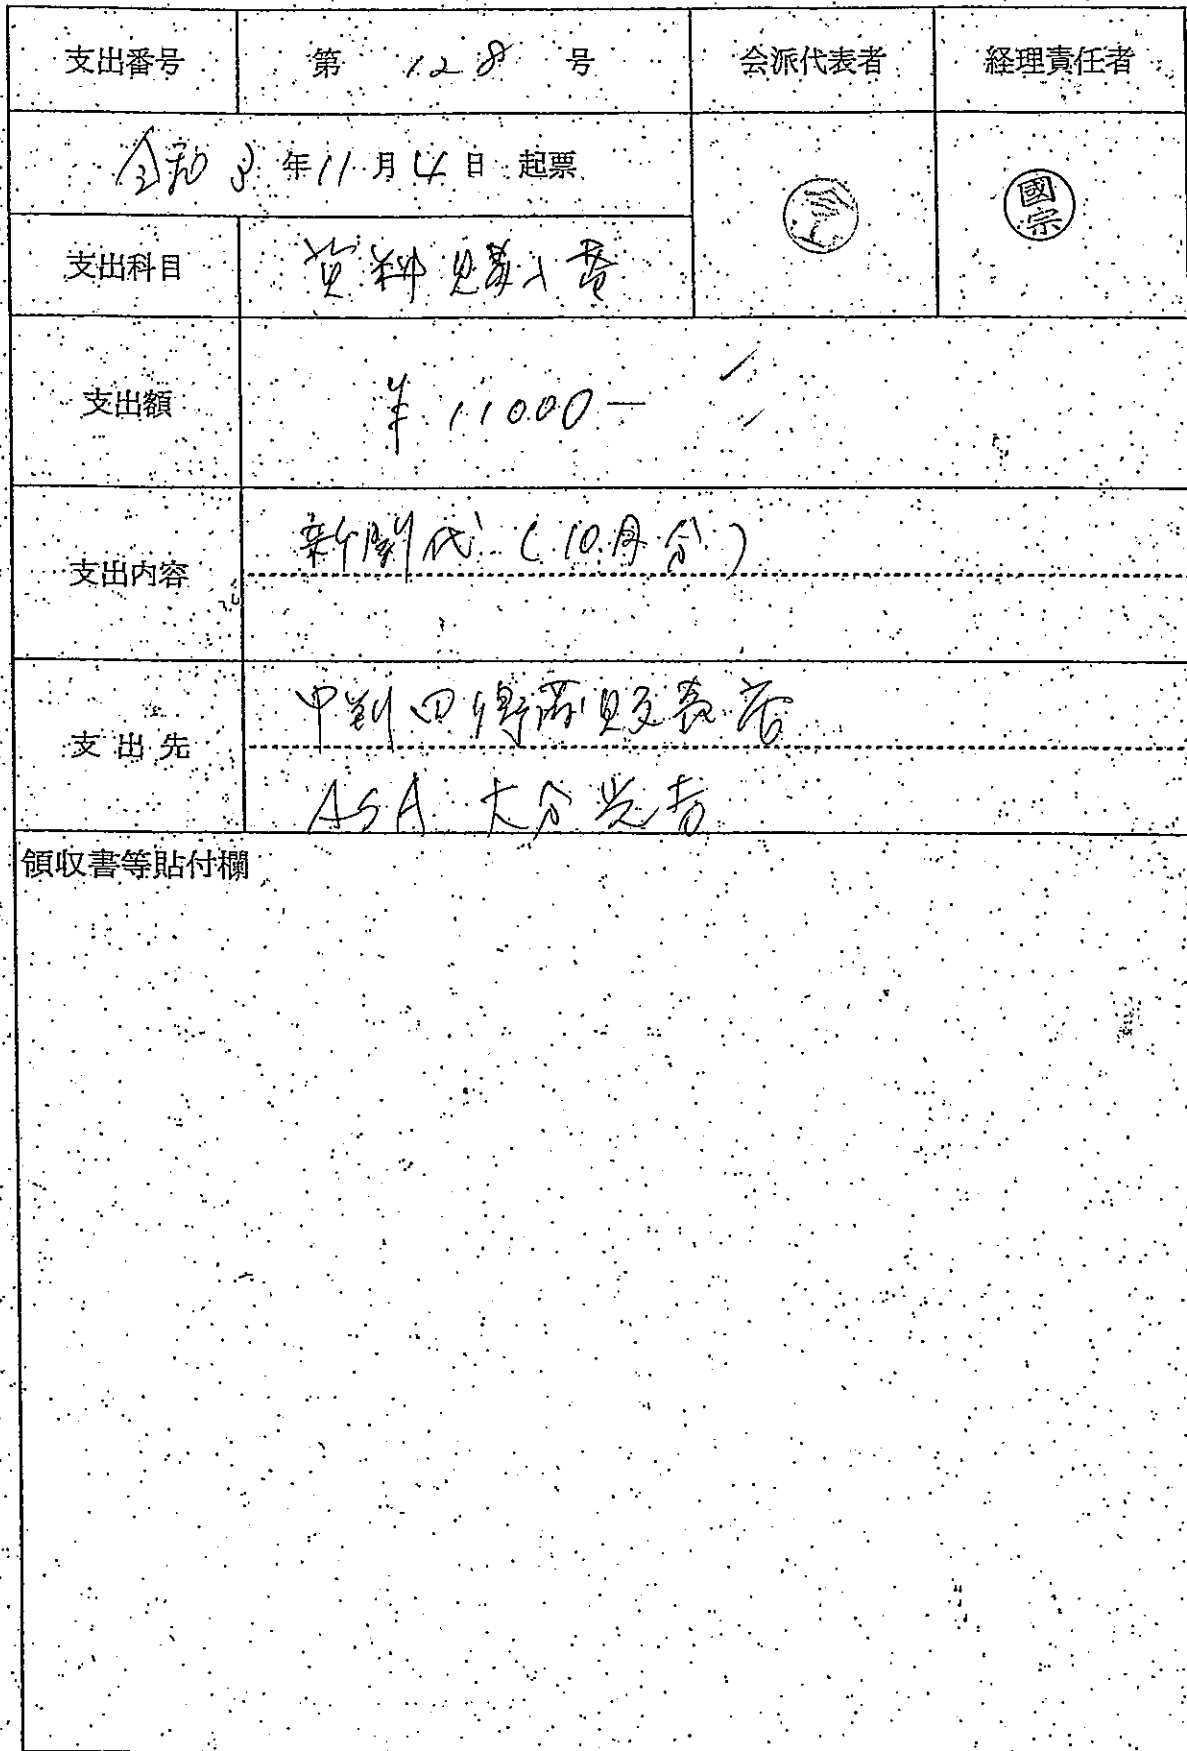 支出番号 第 128 号 会派代表者 経理責任者
令和 3 年 11 月 4 日 起票
國宗
支出科目 資料購入費
支出額 ¥11000−
支出内容 新聞代 (10月分)
支出先 中判田 販売店
ASA 大分
領収書等貼付欄